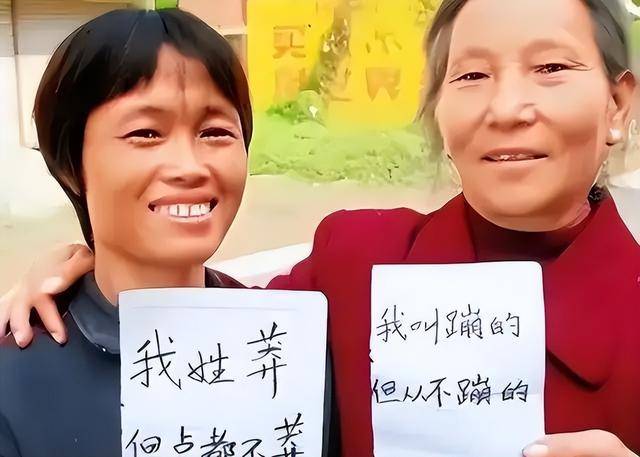 买
界
我姓莽
但点都不莽
我叫蹦的
但从不蹦的